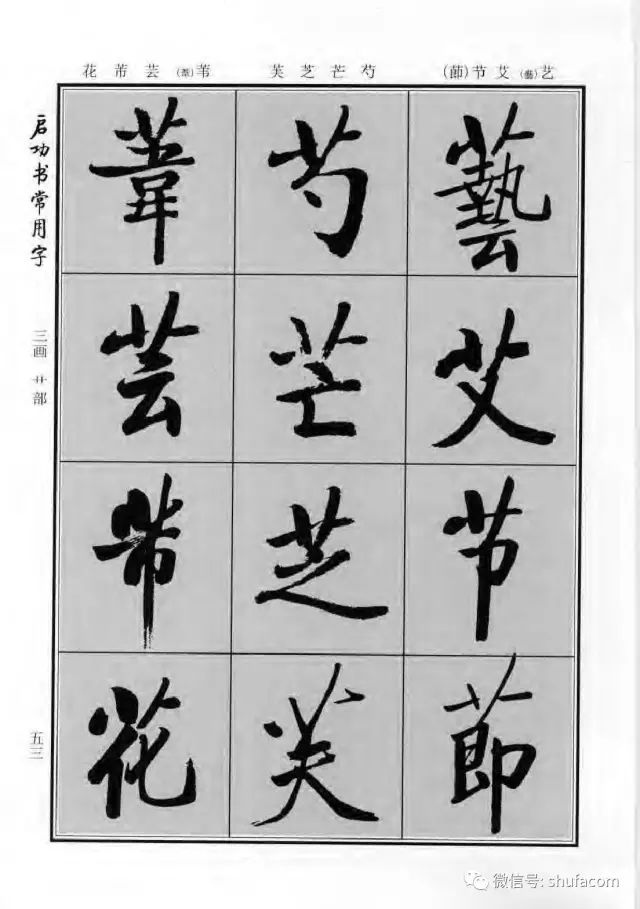 艺(藝)艾节(莭)
芍芒芝芙
苇(葦)芸芾花
藝艾节莭
芍芒芝芙
葦芸芾花
启功书常用字
三画 艹部
五三
微信号: shufacom